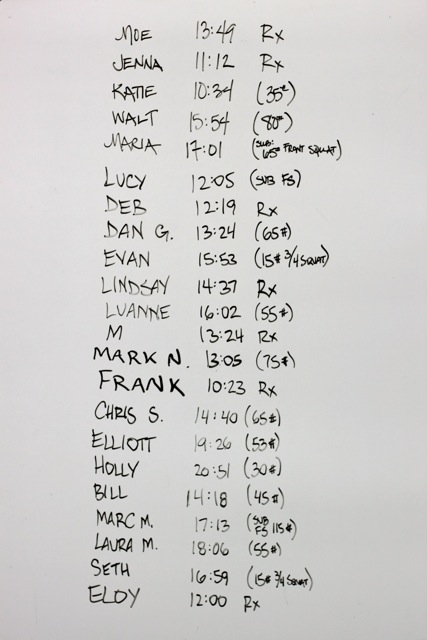 MOE 13:49 Rx
JENNA 11:12 Rx
KATIE 10:34 (35#)
WALT 15:54 (80#)
MARIA 17:01 (SUB: 65# FRONT SQUAT)
LUCY 12:05 (SUB FS)
DEB 12:19 Rx
DAN G. 13:24 (65#)
EVAN 15:53 (15# 3/4 SQUAT)
LINDSAY 14:37 Rx
LUANNE 16:02 (55#)
M 13:24 Rx
MARK N. 13:05 (75#)
FRANK 10:23 Rx
CHRIS S. 14:40 (65#)
ELLIOTT 19:26 (53#)
HOLLY 20:51 (30#)
BILL 14:18 (45#)
MARC M. 17:13 (SUB FS 115#)
LAURA M. 18:06 (55#)
SETH 16:59 (15# 3/4 SQUAT)
ELOY 12:00 Rx